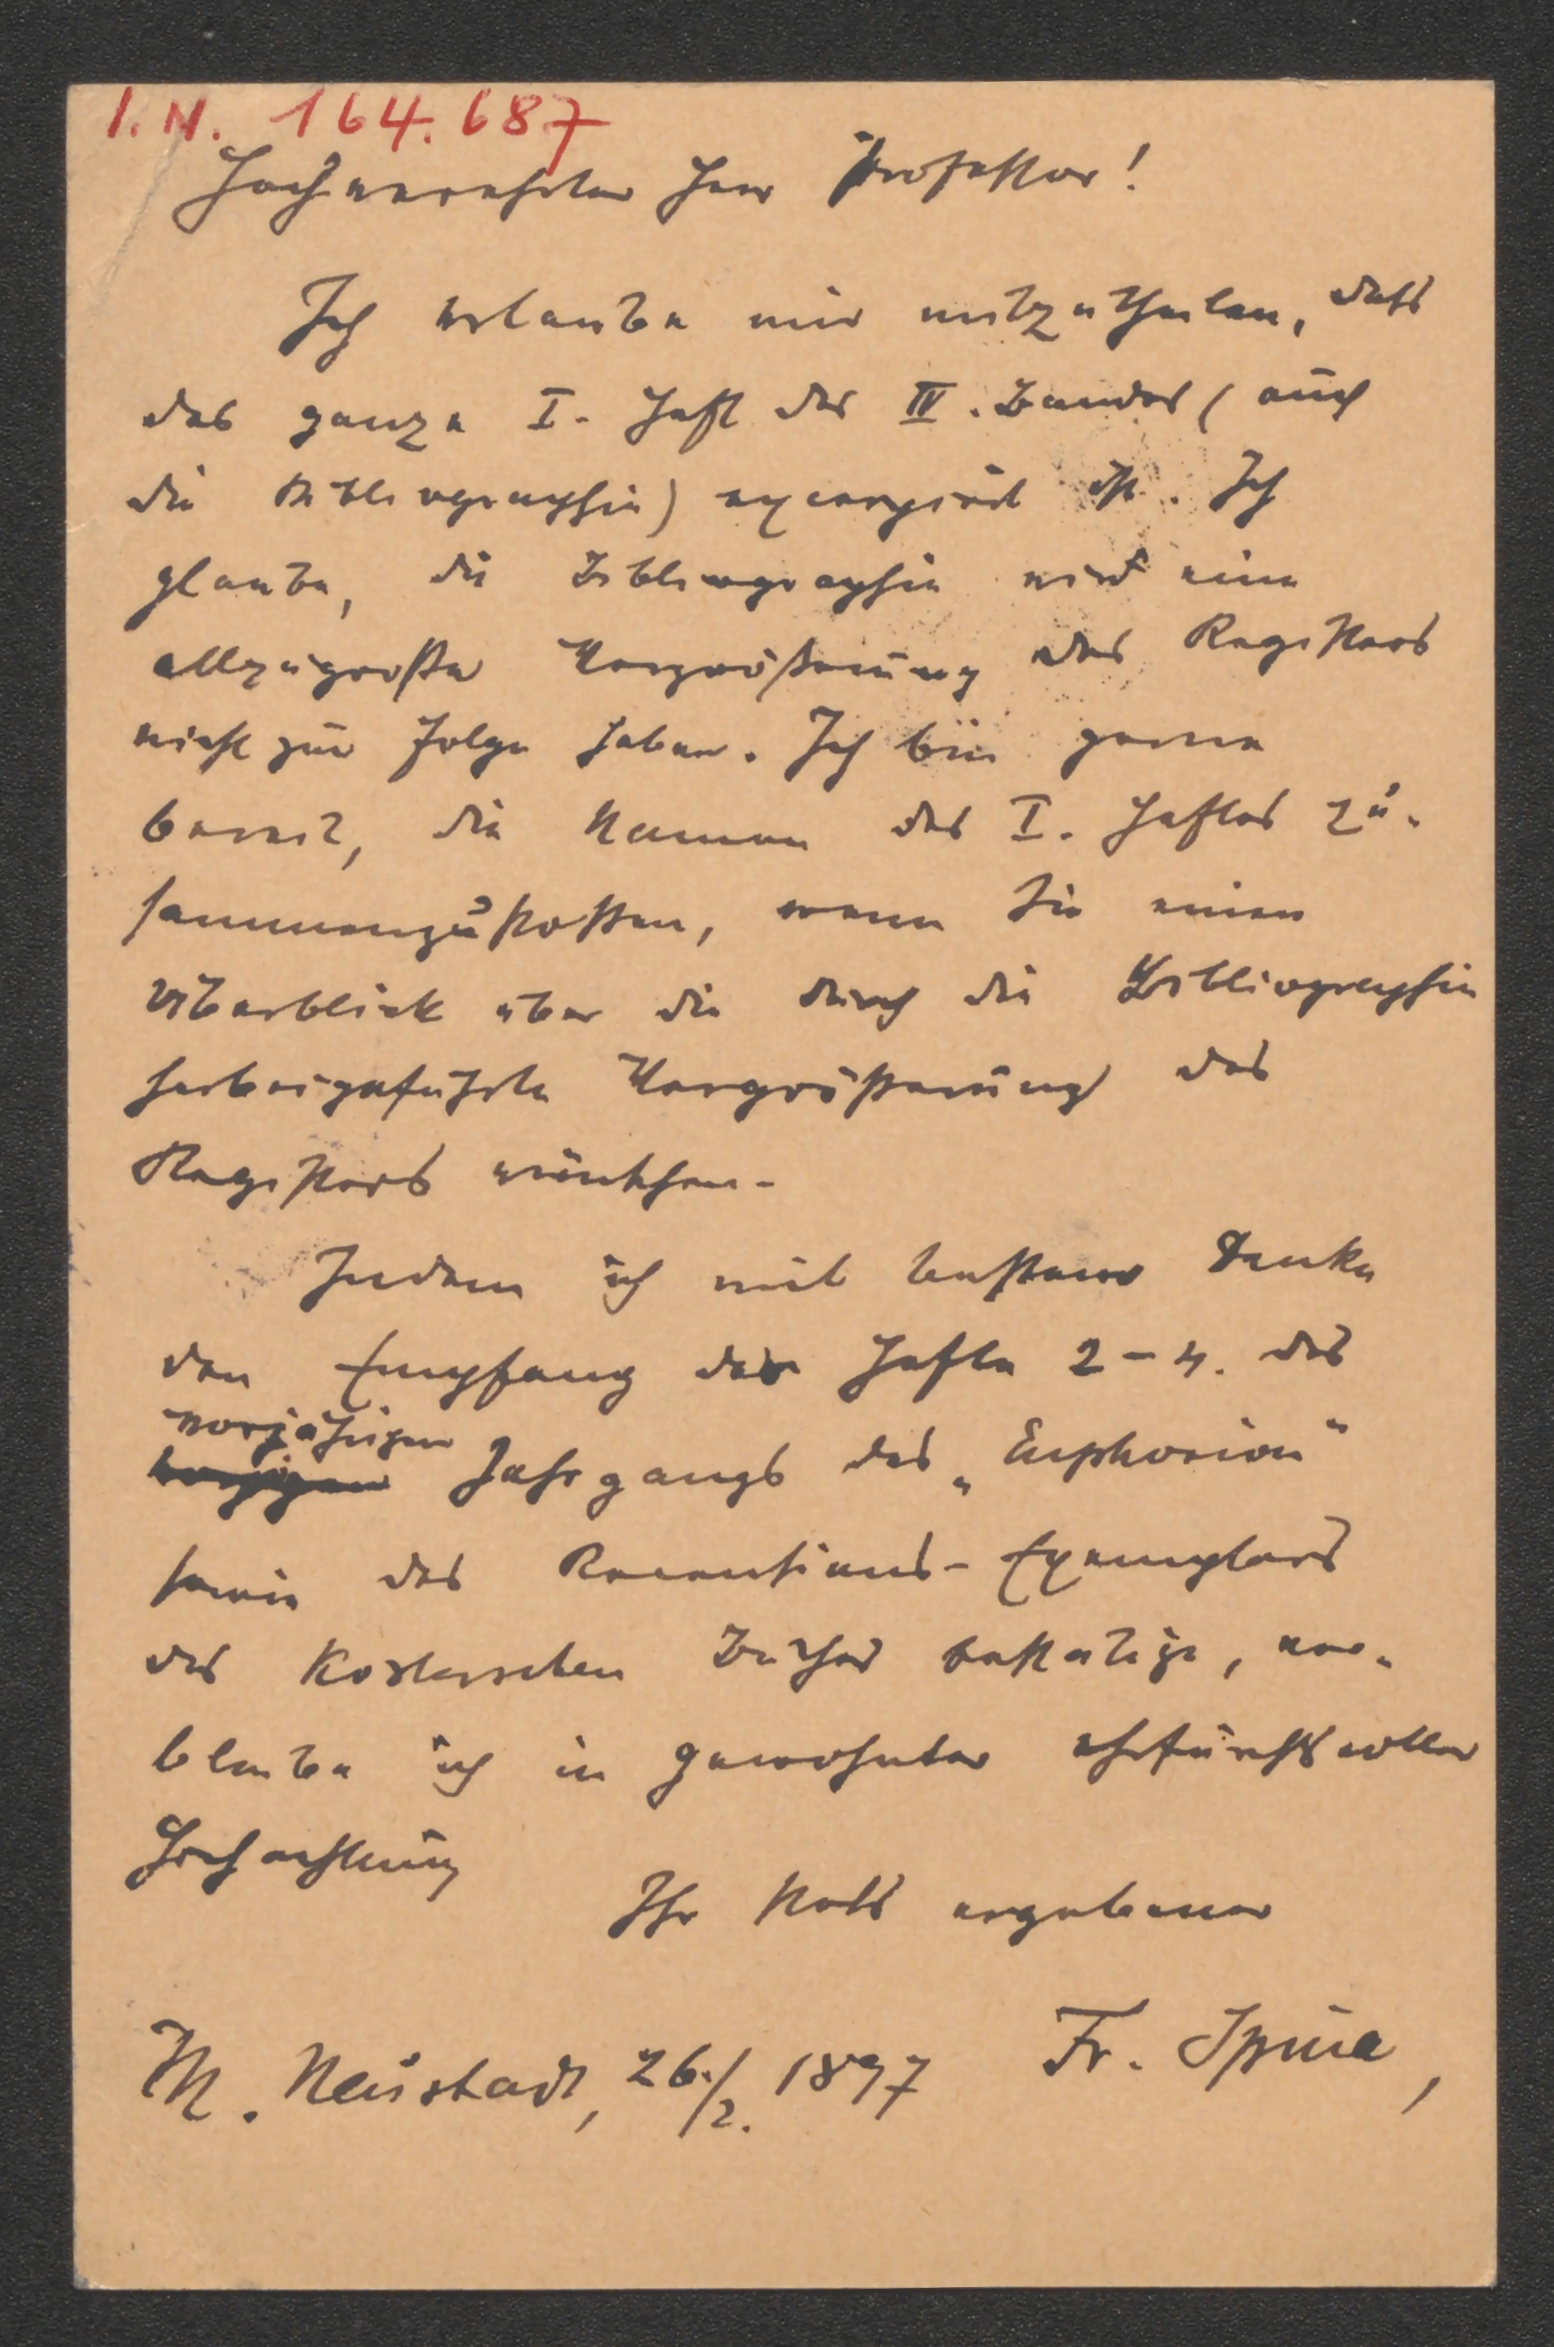 I. N. 164.687
Hochverehrter Herr Professor!
Ich erlaube mir mitzutheilen, daß
das ganze I. Heft des IV. Bandes (auch
die Bibliographie) excerpirt ist. Ich
glaube, die Bibliographie wird eine
allzugroße Vergrößerung des Registers
nicht zur Folge haben. Ich bin gerne
bereit, die Namen des I. Heftes zu-
sammenzustellen, wenn Sie einen
Überblick über die durch die Bibliographie
herbeigeführte Vergrößerung des
Registers wünschen.
Indem ich mit bestem Danke
den Empfang der Hefte 2-4. des
vorjährigen
Jahrgangs des „Euphorion"
sowie des Recensions-Exemplars
des Kosterschen Buches bestätige, ver-
bleibe ich in gewohnter ehrfurchtsvoller
Hochachtung
Ihr stets ergebener
Fr. Spina,
M. Neustadt, 26./2. 1897